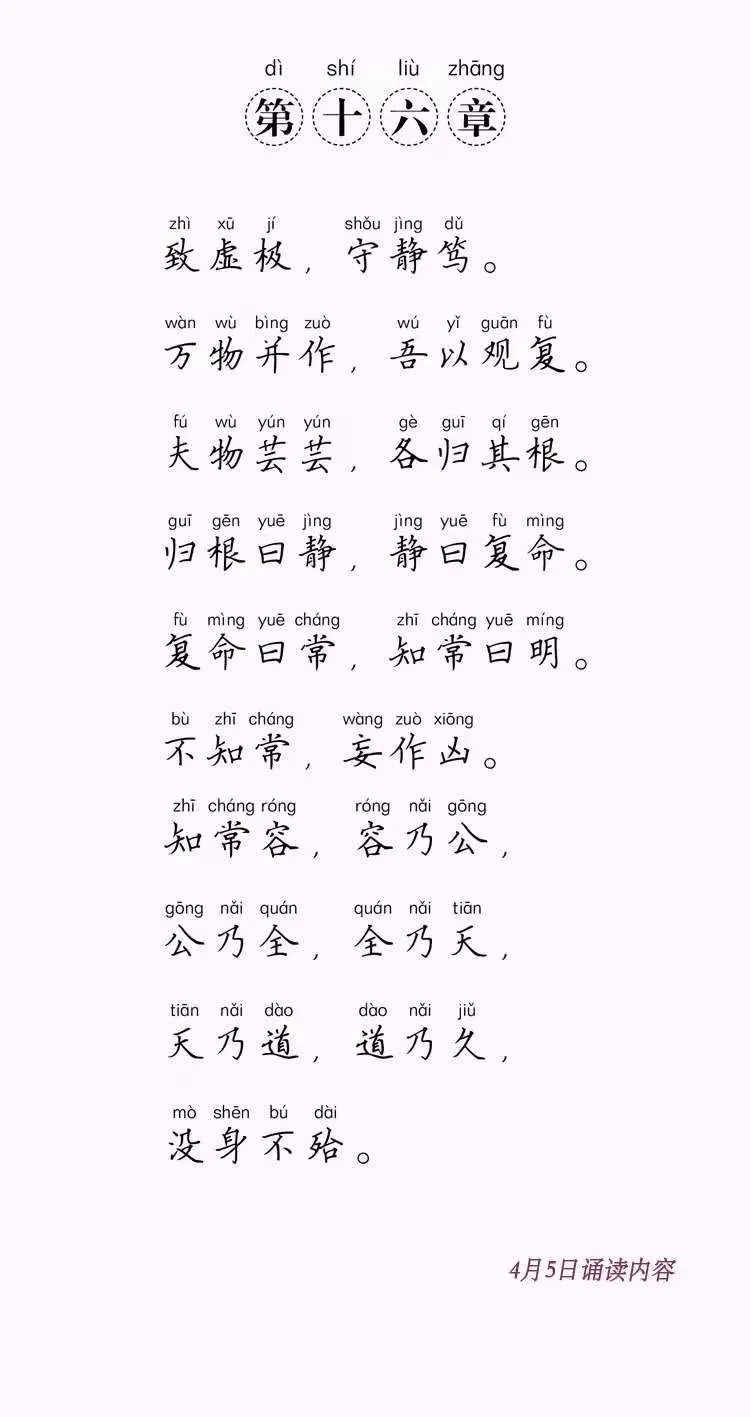 dì shí liù zhāng
第十六章
zhì xū jí shǒu jìng dǔ
致虚极，守静笃。
wàn wù bìng zuò wú yǐ guān fù
万物并作，吾以观复。
fú wù yún yún gè guī qí gēn
夫物芸芸，各归其根。
guī gēn yuē jìng jìng yuē fù mìng
归根曰静，静曰复命。
fù mìng yuē cháng zhī cháng yuē míng
复命曰常，知常曰明。
bù zhī cháng wàng zuò xiōng
不知常，妄作凶。
zhī cháng róng róng nǎi gōng
知常容，容乃公，
gōng nǎi quán quán nǎi tiān
公乃全，全乃天，
tiān nǎi dào dào nǎi jiǔ
天乃道，道乃久，
mò shēn bú dài
没身不殆。
4月5日诵读内容